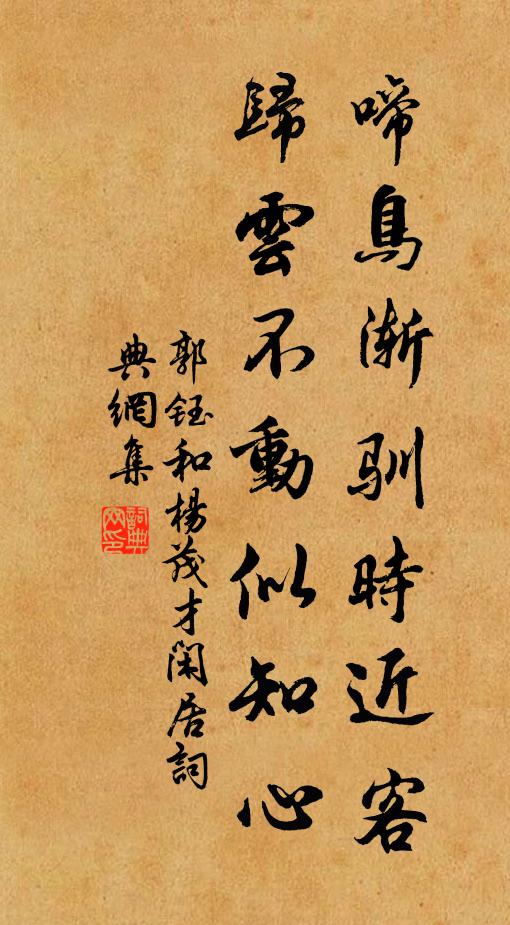 啼鳥漸馴時近客
歸雲不動似知心
郭鈺和楊茂才閑居詞
典網集
詞典網印